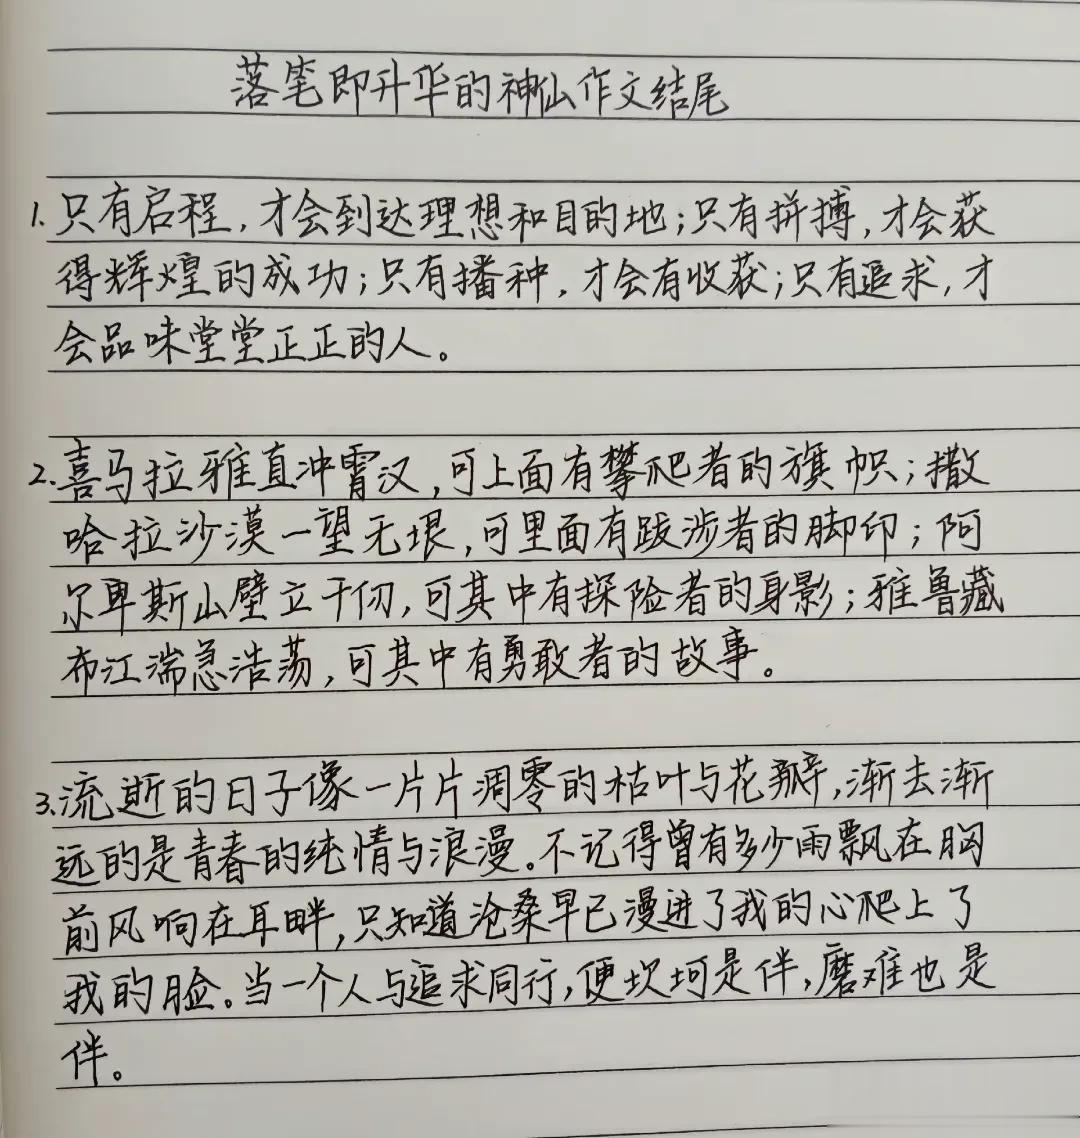 落笔即升华的神仙作文结尾
1.只有启程,才会到达理想和目的地;只有拼搏,才会获
得辉煌的成功;只有播种,才会有收获;只有追求,才
会品味堂堂正正的人。
2.喜马拉雅直冲霄汉,可上面有攀爬者的旗帜;撒
哈拉沙漠一望无垠,可里面有跋涉者的脚印;阿
尔卑斯山壁立千仞,可其中有探险者的身影;雅鲁藏
布江湍急浩荡,可其中有勇敢者的故事。
3.流逝的日子像一片片凋零的枯叶与花瓣,渐去渐
远的是青春的纯情与浪漫。不记得曾有多少雨飘在胸
前风响在耳畔,只知道沧桑早已漫进了我的心爬上了
我的脸。当一个人与追求同行,便坎坷是伴,磨难也是
伴。